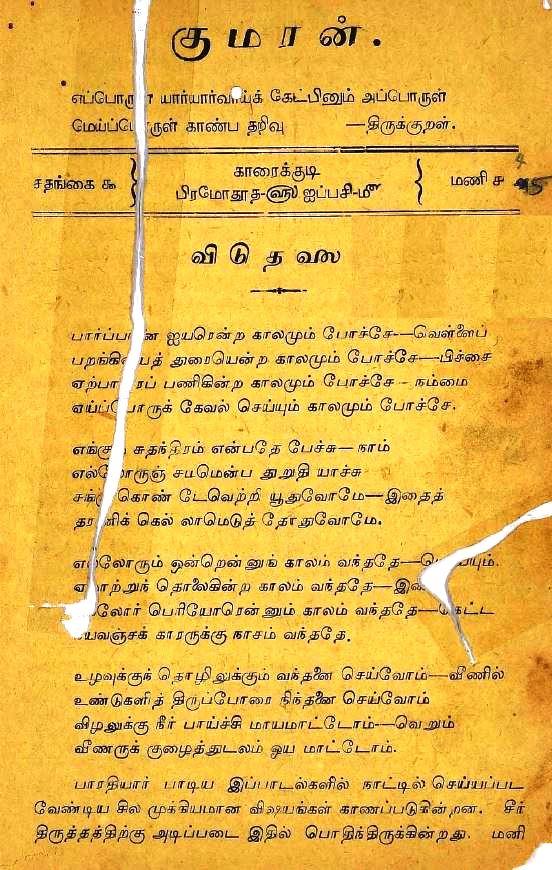 குமரன்.
எப்பொருள் யார்யார்வாய்க் கேட்பினும் அப்பொருள்
மெய்ப்பொருள் காண்ப தறிவு —திருக்குறள்.
சதங்கை ௯
காரைக்குடி
பிரமோதூத-௵ ஐப்பசி-௴
மணி ௪
விடுதலை
பார்ப்பானை ஐயரென்ற காலமும் போச்சே—வெள்ளைப்
பறங்கியைத் துரையென்ற காலமும் போச்சே—பிச்சை
ஏற்பாரைப் பணிகின்ற காலமும் போச்சே—நம்மை
ஏய்ப்போருக் கேவல் செய்யும் காலமும் போச்சே.
எங்கும் சுதந்திரம் என்பதே பேச்சு—நாம்
எல்லோருஞ் சமமென்ப துறுதி யாச்சு
சங்கு கொண் டேவெற்றி யூதுவோமே—இதைத்
தரணிக் கெல் லாமெடுத் தோதுவோமே.
எல்லோரும் ஒன்றென்னுங் காலம் வந்ததே—
தொலைகின்ற காலம் வந்ததே—
பெரியோரென்னும் காலம் வந்ததே—கெட்ட
காரருக்கு நாசம் வந்ததே.
உழவுக்குந் தொழிலுக்கும் வந்தனை செய்வோம்—வீணில்
உண்டுகளித் திருப்போரை நிந்தனை செய்வோம்
விழலுக்கு நீர் பாய்ச்சி மாயமாட்டோம்—வெறும்
வீணருக் குழைத்துடலம் ஓய மாட்டோம்.
பாரதியார் பாடிய இப்பாடல்களில் நாட்டில் செய்யப்பட
வேண்டிய சில முக்கியமான விஷயங்கள் காணப்படுகின்றன. சீர்
திருத்தத்திற்கு அடிப்படை இதில் பொதிந்திருக்கின்றது. மனி